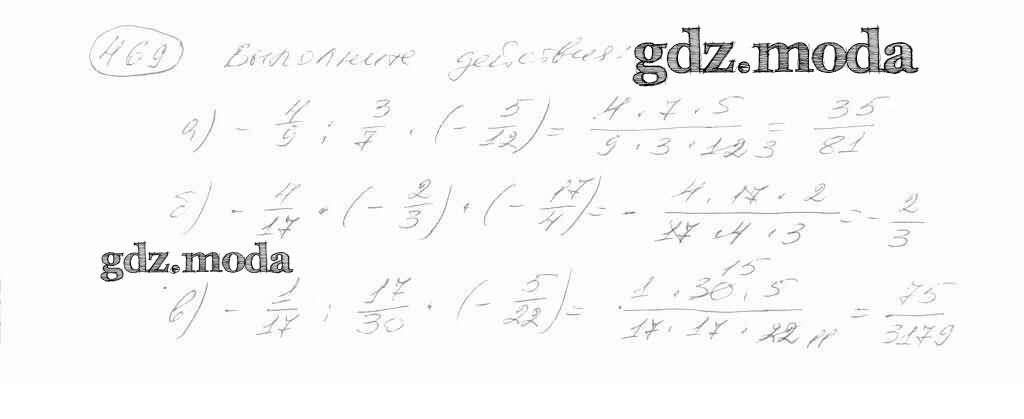 469 Выполните действия: gdz.moda
а) - 4/9 : 3/7 · (- 5/12) = 4 · 7 · 5 / 9 · 3 · 12 3 = 35/81
б) - 4/17 · (- 2/3) · (- 17/4) = - 4 · 17 · 2 / 17 · 4 · 3 = - 2/3
gdz.moda
в) - 1/17 : 17/30 · (- 5/22) = 1 · 30 15 · 5 / 17 · 17 · 22 11 = 75/3179